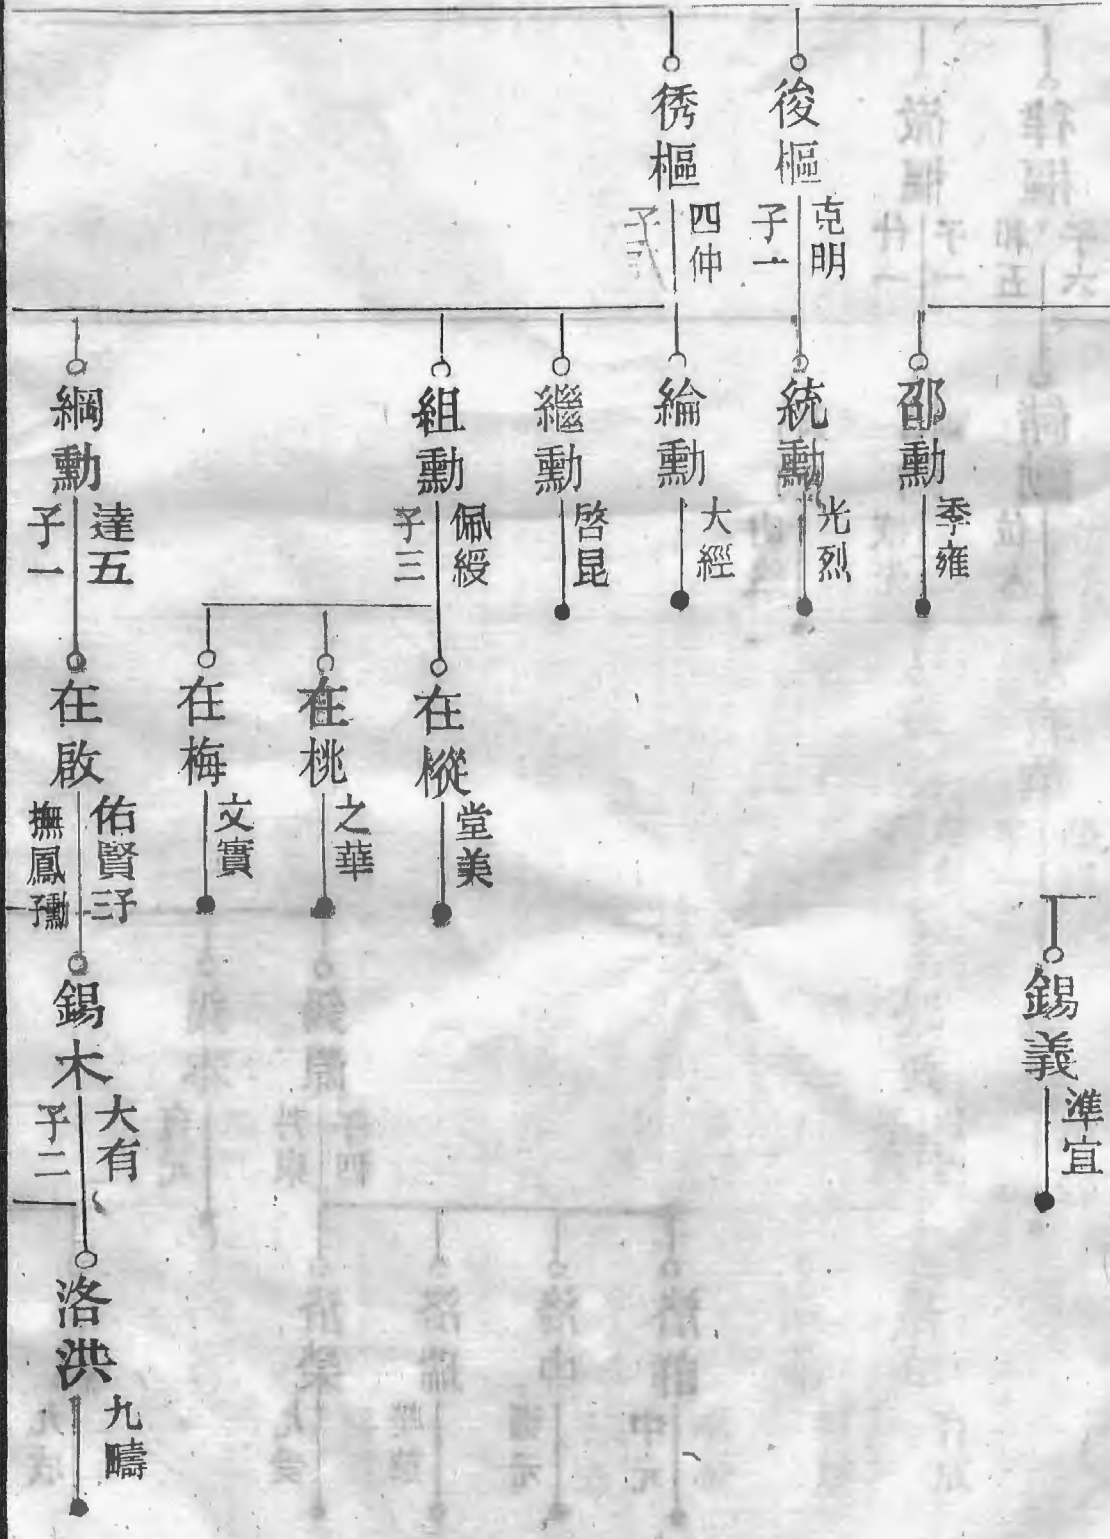 後樞
克明
子一
㣧樞
四仲
邵勳
季雍
統勳
光烈
綸勳
大經
繼勳
啓昆
組勳
佩綬
子三
綱勳
達五
子一
在樅
堂美
在桃
之華
在梅
文實
在啟
佑賢子三
撫鳳勳子
錫義
準宜
錫木
大有
子二
洛洪
九疇